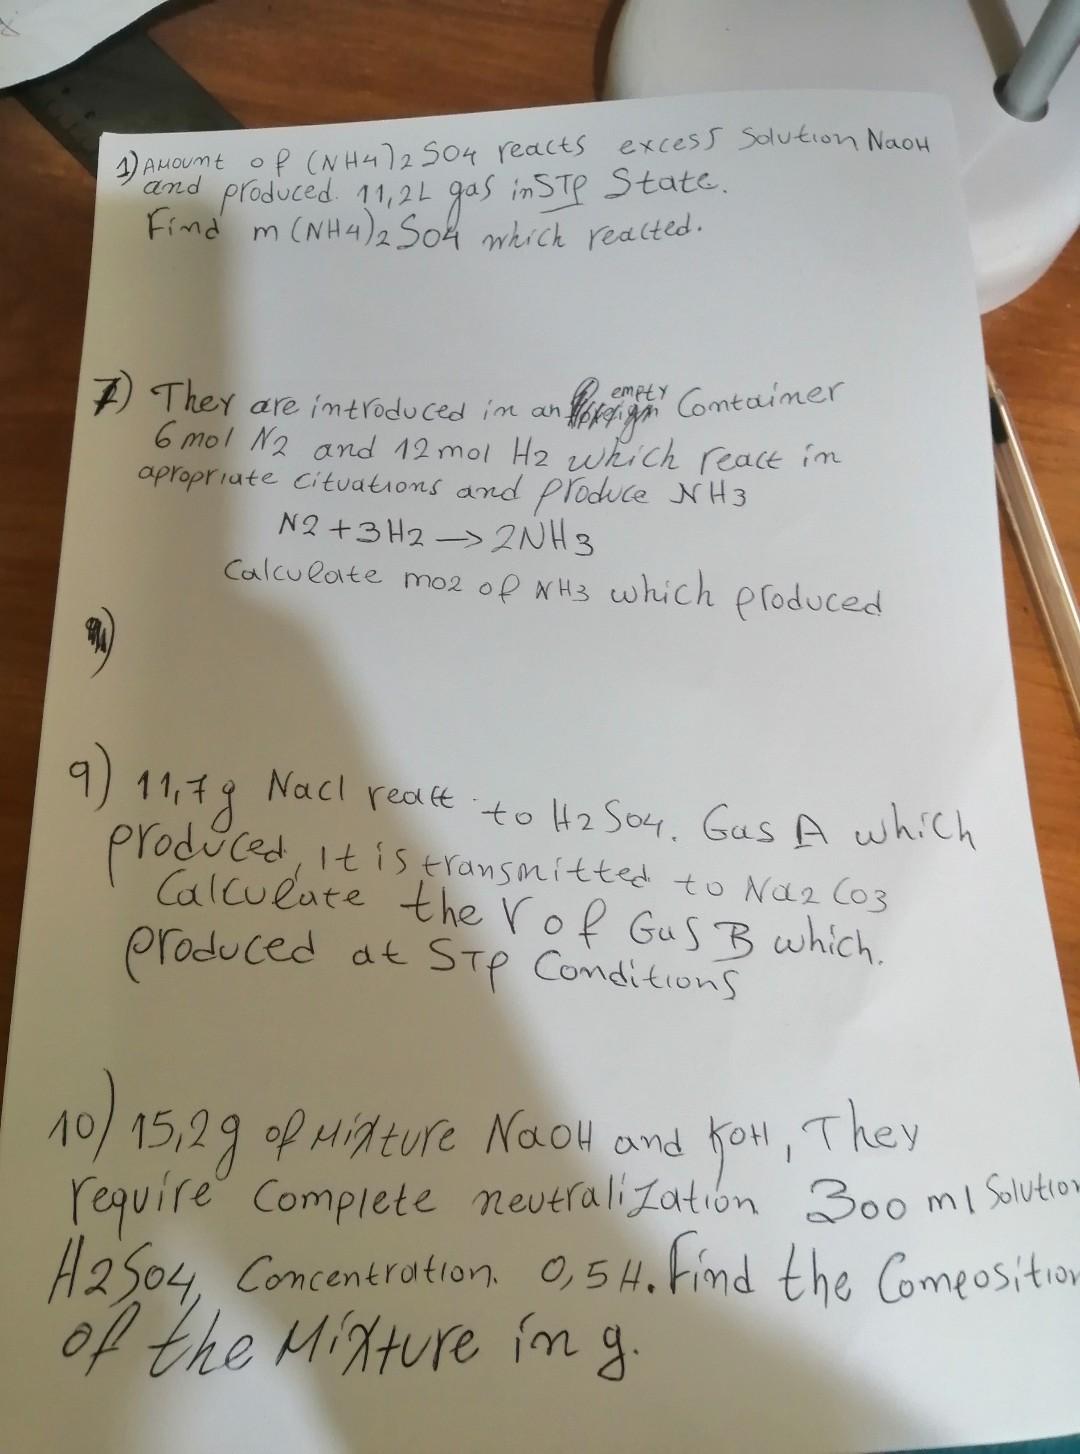 1) Amount of (NH4)2 SO4 reacts excess Solution NaOH
and produced. 11,2L gas in STP State.
Find m (NH4)2 SO4 which reacted.
7) They are introduced in an empty Container
6 mol N2 and 12 mol H2 which react in
apropriate cituations and produce NH3
N2 + 3H2 → 2NH3
Calculate mo2 of NH3 which produced
9) 11,7g Nacl reatt to H2 SO4. Gas A which
produced, it is transmitted to Na2 CO3
Calculate the V of Gas B which.
produced at STP Conditions
10) 15,2g of Mixture NaOH and KOH, They
require Complete neutralization 300 ml Solution
H2SO4, Concentration. 0,5 H. Find the Composition
of the Mixture in g.